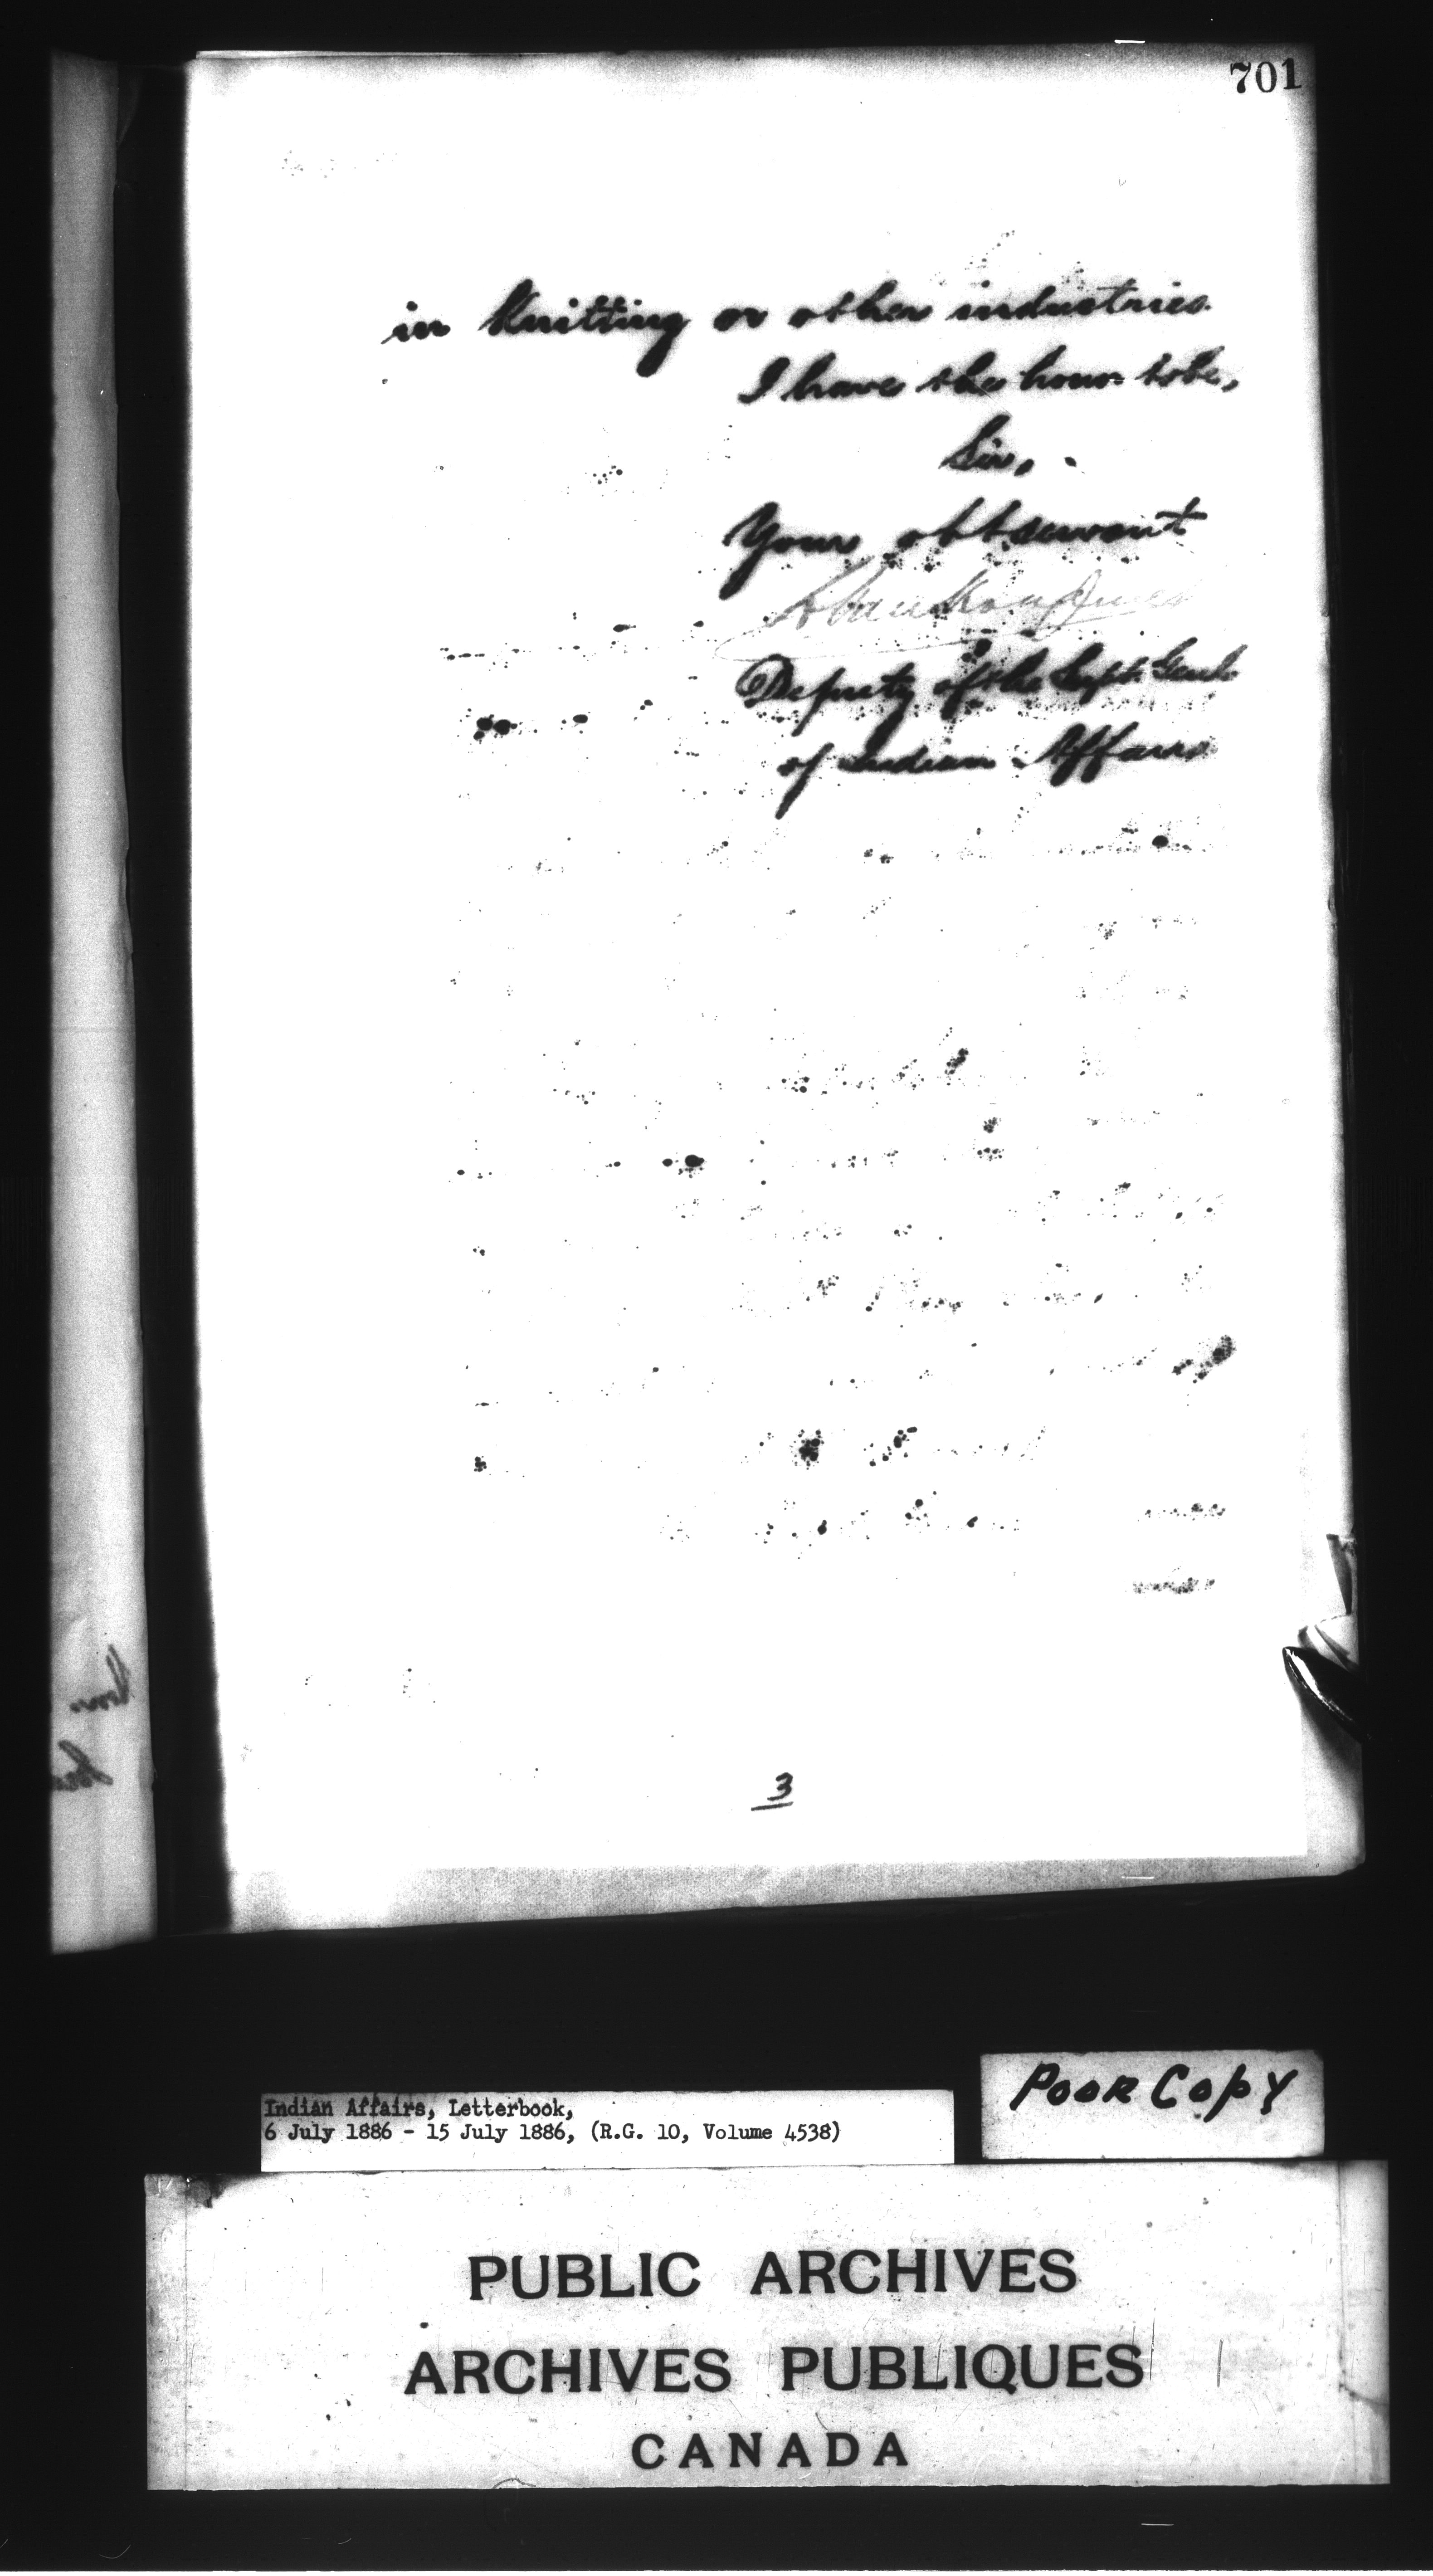 701
in Knitting or other industries.
I have the honor to be,
Sir,
Your obt servant
L. Vankoughnet
Deputy of the Supt. Genl.
of Indian Affairs
3
Poor Copy
Indian Affairs, Letterbook,
6 July 1886 - 15 July 1886, (R.G. 10, Volume 4538)
PUBLIC ARCHIVES
ARCHIVES PUBLIQUES
CANADA